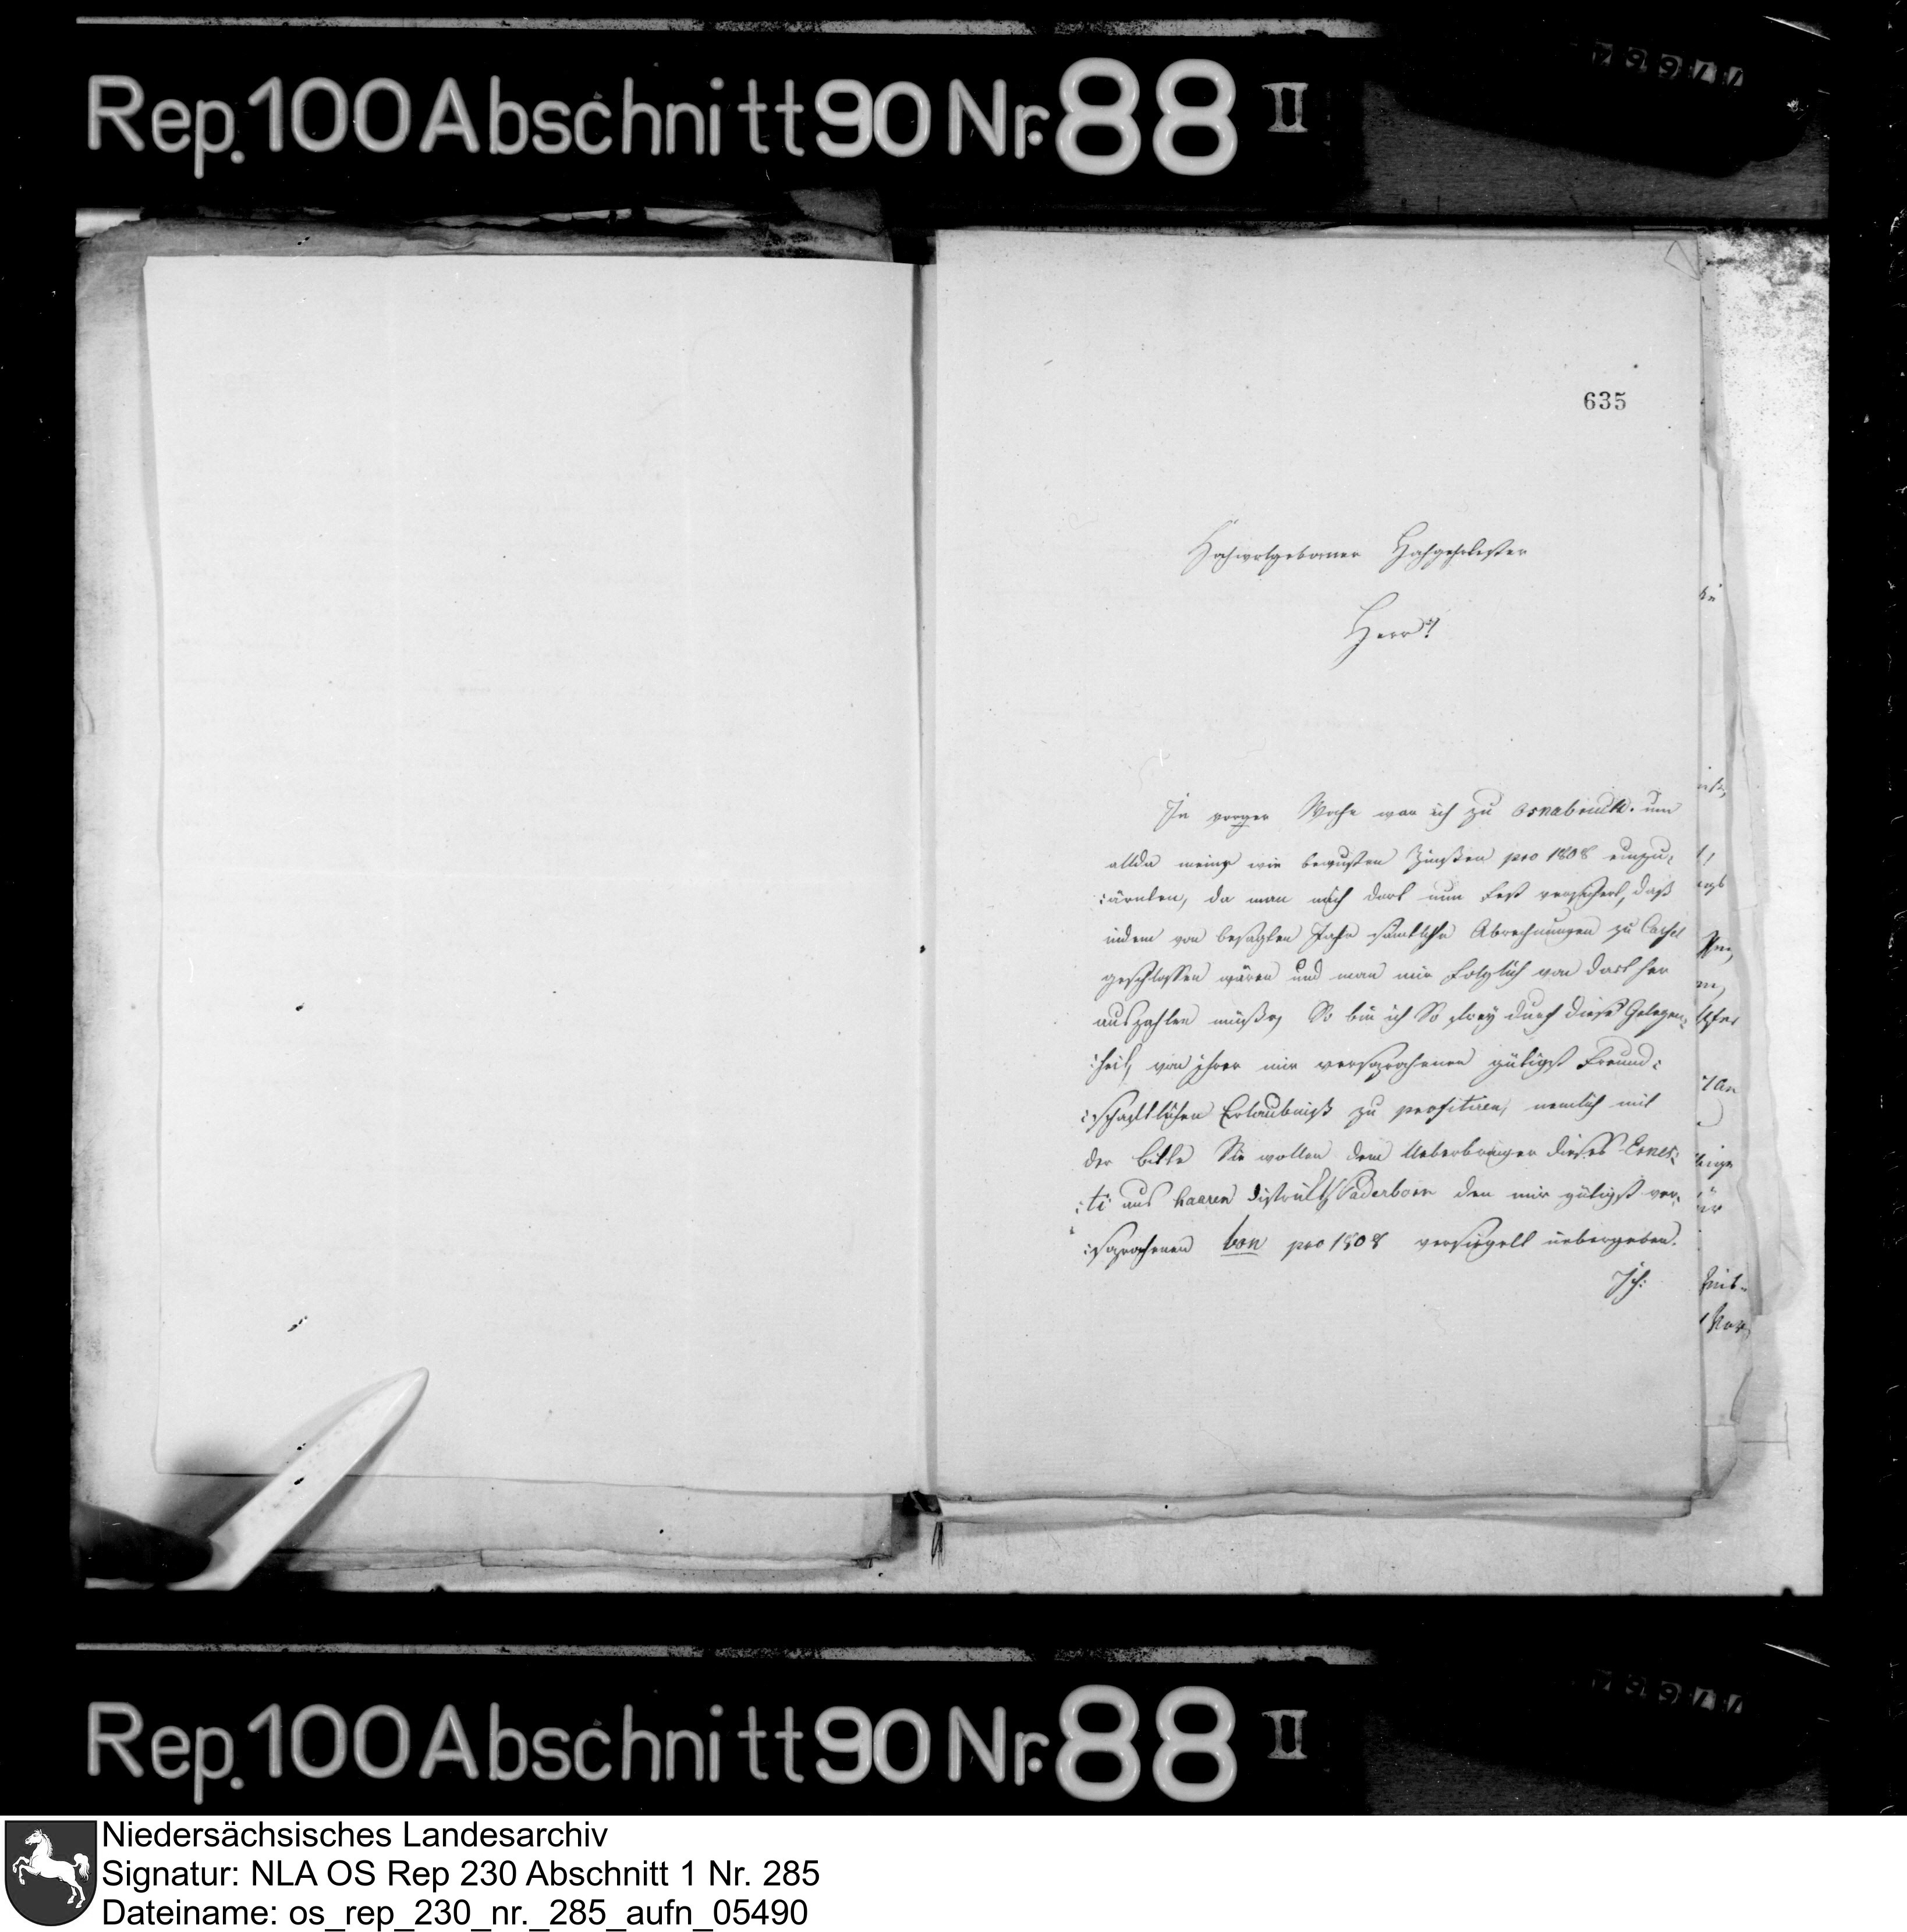 Rep. 100 Abschnitt 90 Nr. 88 II
635
Hochwolgeborner Hochgeehrtester
Herr!
In voriger Woche war ich zu Osnabruck. um
allda meine wie bewusten Zinßen pro 1808 einzu-
:ärnten, da man mich dort nun fest versichert, daß
indem von besagten Jahr sämtliche Abrechnungen zu Cassel
geschlossen wären und man mir folglich von dort her
auszahlen müste, So bin ich So frey durch diese Gelegen-
:heit, von ihrer mir versprochenen gütigst Freund:
:schaftlichen Erlaubniß zu profitiren, nemlich mit
der bitte Sie wollen dem Ueberbringer dieses Ernes:
:ti aus haaren districkts Paderborn den mir gütigst ver-
:sprochenen bon pro 1808 versiegelt uebergeben.
Ich:
Rep. 100 Abschnitt 90 Nr. 88 II
Niedersächsisches Landesarchiv
Signatur: NLA OS Rep 230 Abschnitt 1 Nr. 285
Dateiname: os_rep_230_nr._285_aufn_05490